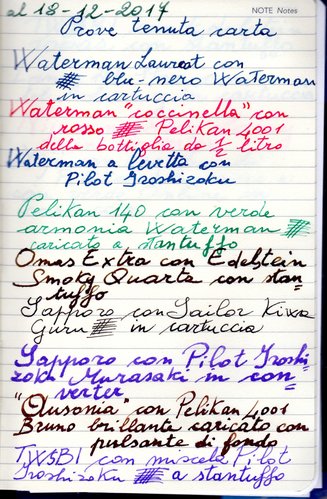 al 18-12-2017
NOTE Notes
Prove tenuta carta
Waterman Laureat con
blu-nero Waterman
in cartuccia
Waterman "coccinella" con
rosso Pelikan 4001
della bottiglia da 1/2 litro
Waterman a levetta con
Pilot Iroshizoku
Pelikan 140 con verde
armonia Waterman
caricato a stantuffo
Omas Extra con Edelstein
Smoky Quartz con stan-
tuffo
Sapporo con Sailor Kiwa
Guru in cartuccia
Sapporo con Pilot Iroshi-
zoku Murasaki in con-
verter
"Ausonia" con Pelikan 4001
Bruno brillante caricato con
pulsante di fondo
TWSBI con miscela Pilot
Iroshizoku a stantuffo